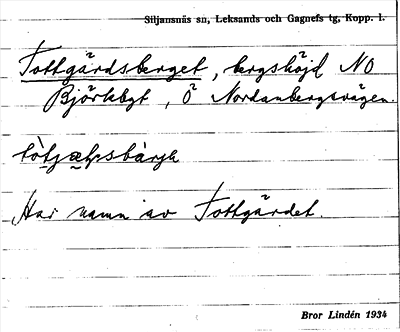 Siljansnäs sn, Leksands och Gagnefs tg, Kopp. l.
Tottgärdsberget, bergshöjd NO
Björkbyt, Ö Nordanbergsvägen.
Har namn av Tottgärdet.
Bror Lindén 1934